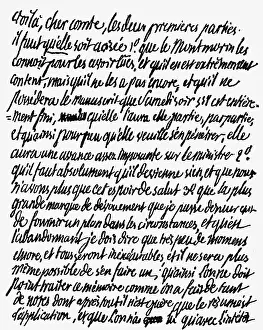 Voilà, cher comte, les deux premières parties.
il faut qu'elle soit avisée 1.° que le M.ontmorin les
connoît pour les avoir lues, et qu'il en est extrêmement
content, mais qu'il ne les a pas encore, et qu'il ne
possédera le manuscrit que lundi soir s'il est entière-
ment fini, qu'elle l'aura elle partie, par partie,
et qu'ainsi pour peu qu'elle veuille s'en pénétrer, elle
aura une avance assez importante sur le ministre 2.°
qu'il faut absolument qu'il devienne sien, et que nous
n'avons plus que cet espoir de salut 3.° que la plus
grande marque de dévouement que je puisse donner
de fournir un plan dans les circonstances, et qu'en
l'abandonnant je dois dire que très peu de momens
encore, et tous seront inexécutables, et il ne sera plus
même possible de s'en faire un, qu'ainsi l'on ne doit
point traiter ce mémoire comme on a fait de tant
de notes dont après tout il n'est guère que le résumé
d'application, et que l'on n'a